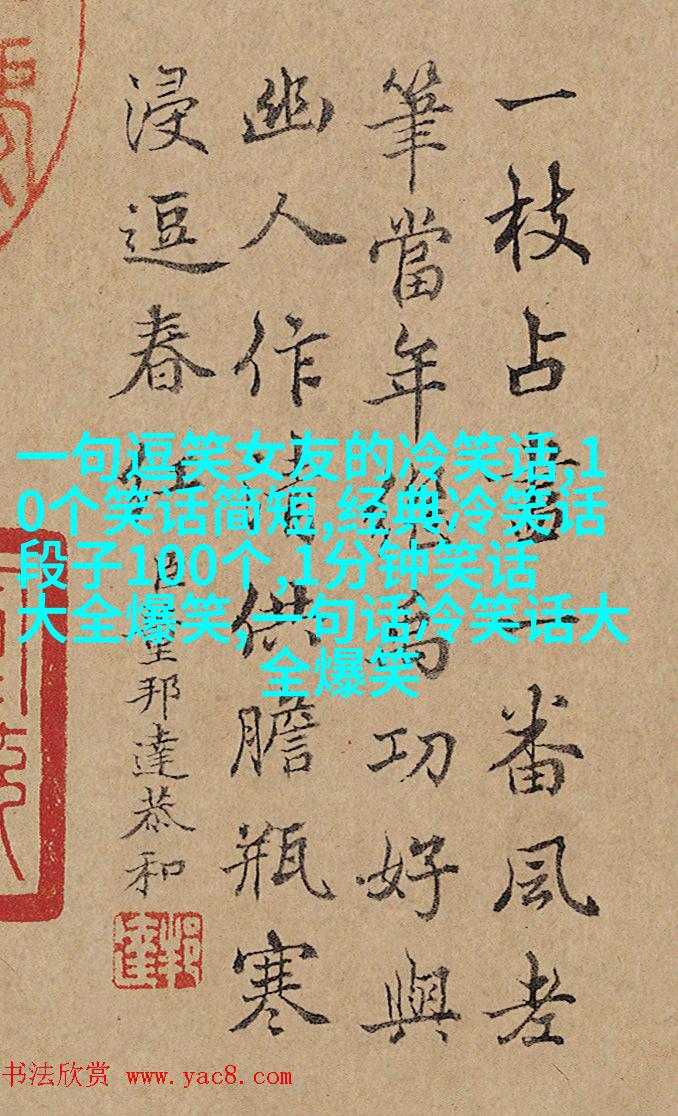 一枝占一番風老
筆當年為功好與
幽人作清供膽瓶寒
浸逗春
臣董邦達恭和
一句逗笑女友的冷笑话,1
0个笑话简短,经典冷笑话
段子100个,1分钟笑话
大全爆笑,一句话冷笑话大
全爆笑
书法欣赏 www.yac8.com